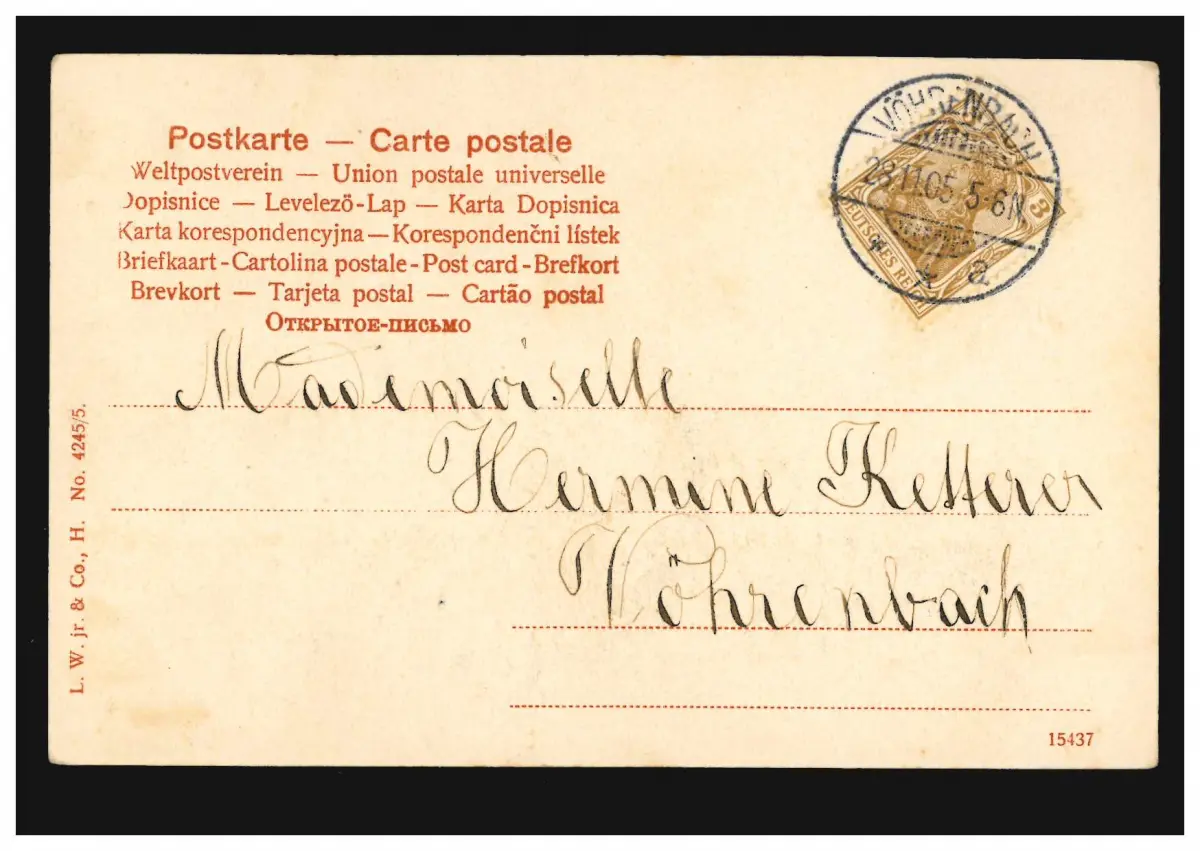 Postkarte — Carte postale
Weltpostverein — Union postale universelle
Dopisnice — Levelező-Lap — Karta Dopisnica
Karta korespondencyjna — Korespondenčni lístek
Briefkaart - Cartolina postale - Post card - Brefkort
Brevkort — Tarjeta postal — Cartão postal
Открытое-письмо
VÖHRENBACH
28.11.05 5-6N.
* a
3
DEUTSCHES REICH
Mademoiselle
Hermine Ketterer
Vöhrenbach
L. W. jr. & Co., H. No. 4245/5.
15437